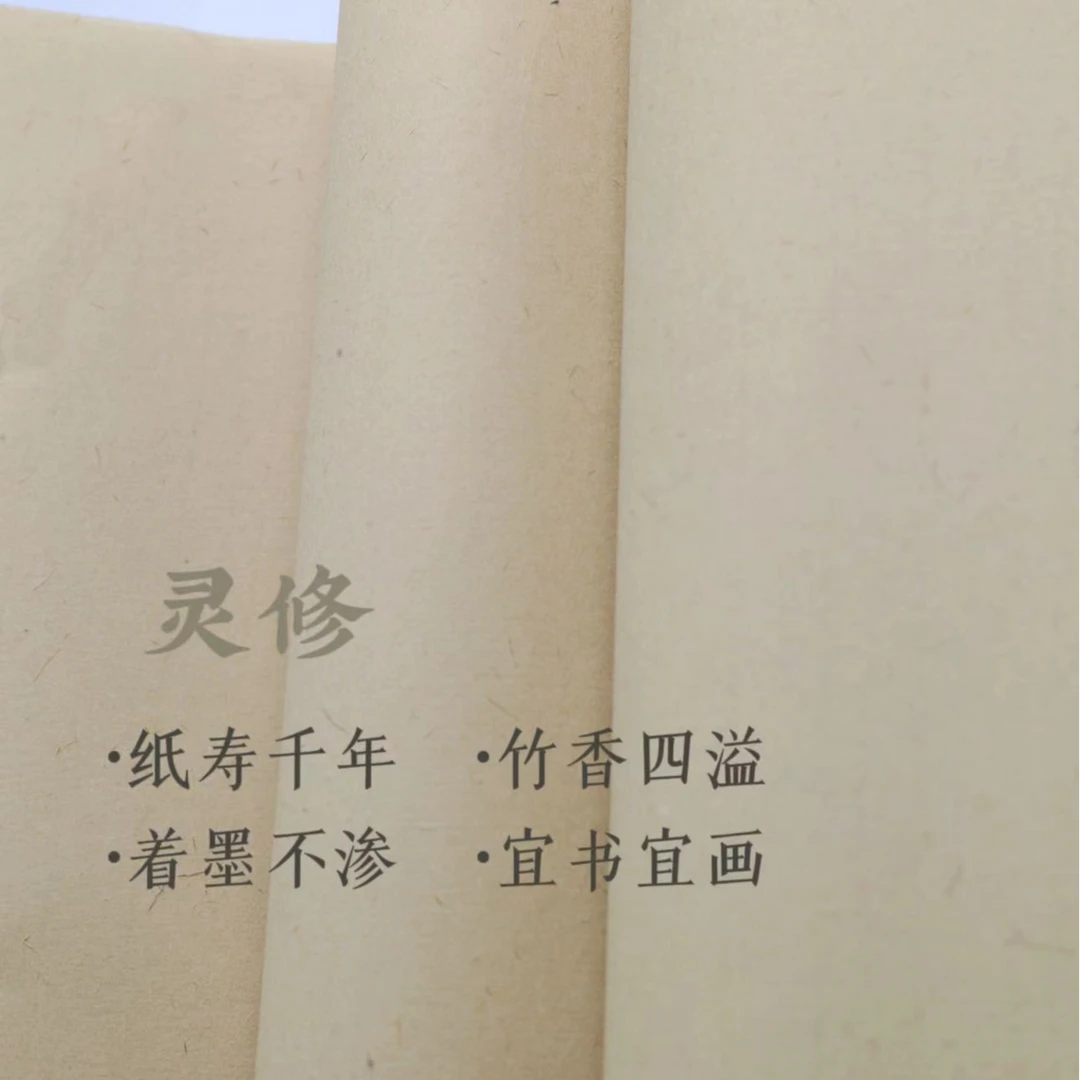 灵修
·纸寿千年 ·竹香四溢
·着墨不渗 ·宜书宜画